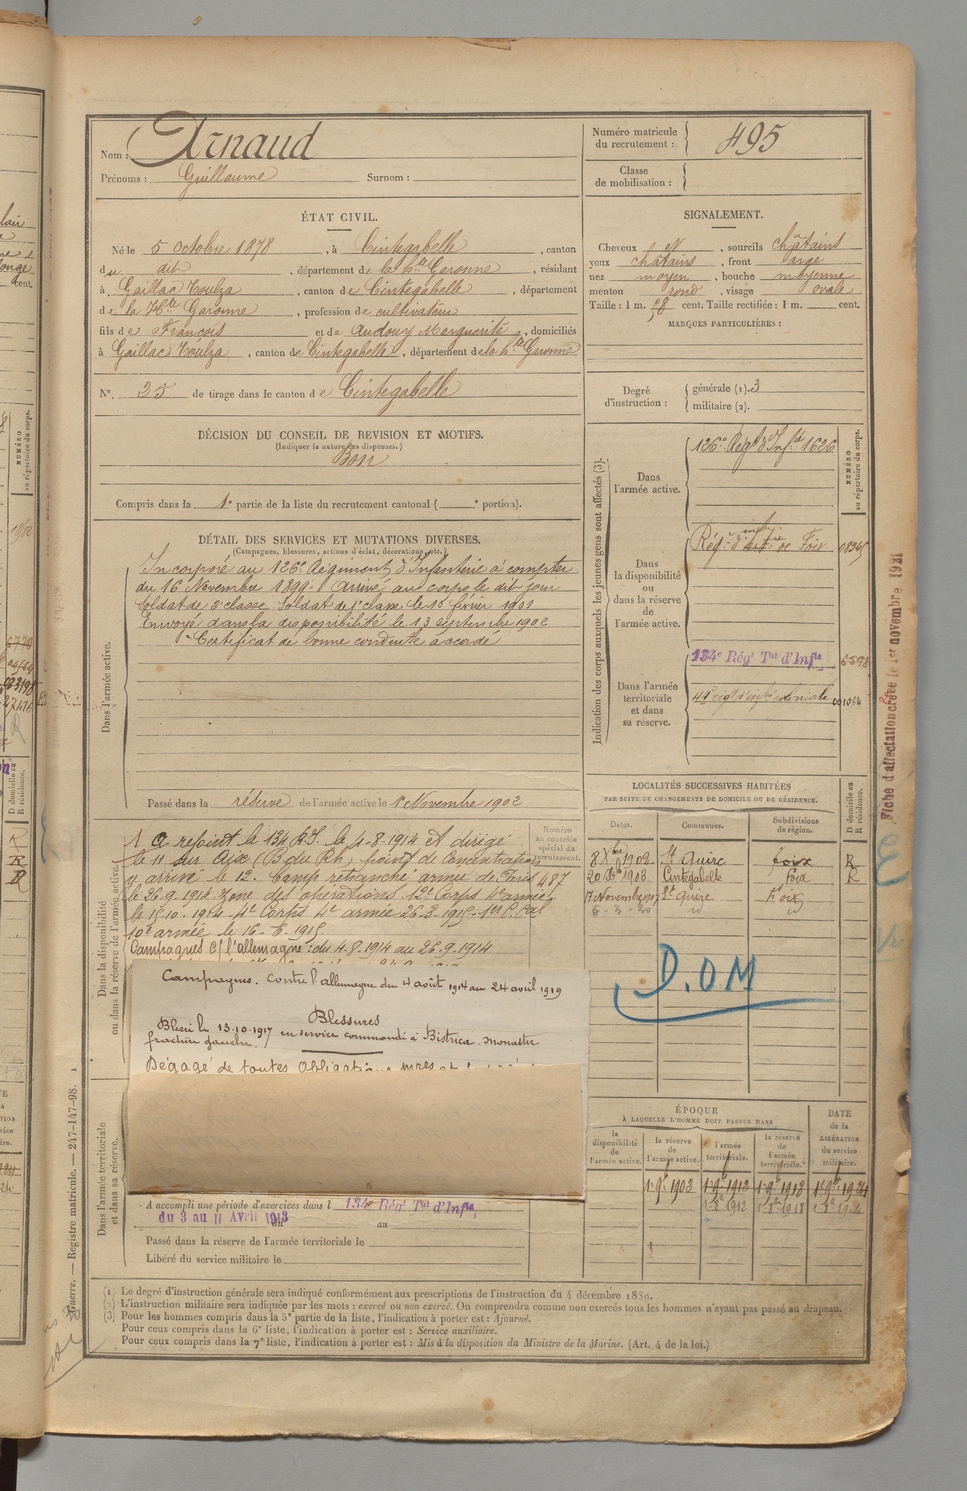 Nom : Arnaud
Prénoms : Guillaume Surnom :
Numéro matricule du recrutement : 495
Classe de mobilisation :
ÉTAT CIVIL.
Né le 5 octobre 1878, à Cintegabelle, canton
du dit, département de la hte Garonne, résidant
à Gaillac Toulza, canton de Cintegabelle, département
de la Hte Garonne, profession de cultivateur
fils de François et de Audouy Marguerite, domiciliés
à Gaillac Toulza, canton de Cintegabelle, département de la hte Garonne
N°. 35 de tirage dans le canton de Cintegabelle
SIGNALEMENT.
Cheveux N, sourcils châtains
yeux châtains, front large
nez moyen, bouche moyenne
menton rond, visage ovale
Taille : 1 m. 58 cent. Taille rectifiée : 1 m. cent.
MARQUES PARTICULIÈRES :
Degré d'instruction : générale (1). 3
militaire (2).
DÉCISION DU CONSEIL DE REVISION ET MOTIFS.
(Indiquer la nature des dispenses.)
Bon
Compris dans la 1e partie de la liste du recrutement cantonal ( e portion).
DÉTAIL DES SERVICES ET MUTATIONS DIVERSES.
(Campagnes, blessures, actions d'éclat, décorations, etc.)
Dans l'armée active.
Incorporé au 126e Régiment d'Infanterie à compter
du 16 Novembre 1899. Arrivé au corps le dit jour
Soldat de 2e classe. Soldat de 1e classe le 16 février 1901
Envoyé dans la disponibilité le 13 septembre 1902
Certificat de bonne conduite accordé
Passé dans la réserve de l'armée active le 1er Novembre 1902
Indication des corps auxquels les jeunes gens sont affectés (3).
NUMÉRO au répertoire du corps.
Dans l'armée active.
126e Régt d'Infie 1626
Dans la disponibilité ou dans la réserve de l'armée active.
Régt d'infie de Foix
Dans l'armée territoriale et dans sa réserve.
134e Régt Tal d'Infie
Fiche d'affectation créée le 1er novembre 1921
LOCALITÉS SUCCESSIVES HABITÉES
PAR SUITE DE CHANGEMENTS DE DOMICILE OU DE RÉSIDENCE.
Dates. Communes. Subdivisions de région. D domicile ou R résidence.
8 Xbre 1902 St Quirc foix R
20 1903 Cintegabelle Foix R
St Quirc Foix
8-3-20
D.OM
Dans la disponibilité ou dans la réserve de l'armée active.
Numéro au contrôle spécial du recrutement.
487
A rejoint le 134 R.I. le 4-8-1914 et dirigé
le 11 sur Aix (B du Rh) point de concentration
y arrivé le 12. Camp retranché armée de Paris
le 26.9.1914 zone des opérations. 12e Corps 4e armée
le 15-10-1914 4e Corps 4e armée 26-3-1915
10e armée le 16-6-1915
Campagnes c/ l'allemagne : du 4-8-1914 au 26-9-1914
Campagnes. Contre l'allemagne du 4 août 1914 au 24 avril 1919
Blessures
Blessé le 13.10.1917 en service commandé à Bistrica. Monastir
fracture gauche.
Dégagé de toutes obligations
Dans l'armée territoriale et dans sa réserve.
A accompli une période d'exercices dans l 134e Régt Tal d'Infie
du 3 au 11 Avril 1913
au
Passé dans la réserve de l'armée territoriale le
Libéré du service militaire le
ÉPOQUE
À LAQUELLE L'HOMME DOIT PASSER DANS
la disponibilité de l'armée active.
la réserve de l'armée active.
l'armée territoriale.
la réserve de l'armée territoriale.
DATE de la LIBÉRATION du service militaire.
(1) Le degré d'instruction générale sera indiqué conformément aux prescriptions de l'instruction du 4 décembre 1889.
(2) L'instruction militaire sera indiquée par les mots : exercé ou non exercé. On comprendra comme non exercés tous les hommes n'ayant pas passé au drapeau.
(3) Pour les hommes compris dans la 5e partie de la liste, l'indication à porter est : Ajourné.
Pour ceux compris dans la 6e liste, l'indication à porter est : Service auxiliaire.
Pour ceux compris dans la 7e liste, l'indication à porter est : Mis à la disposition du Ministre de la Marine. (Art. 4 de la loi.)
Guerre. — Registre matricule. — 247-147-98.